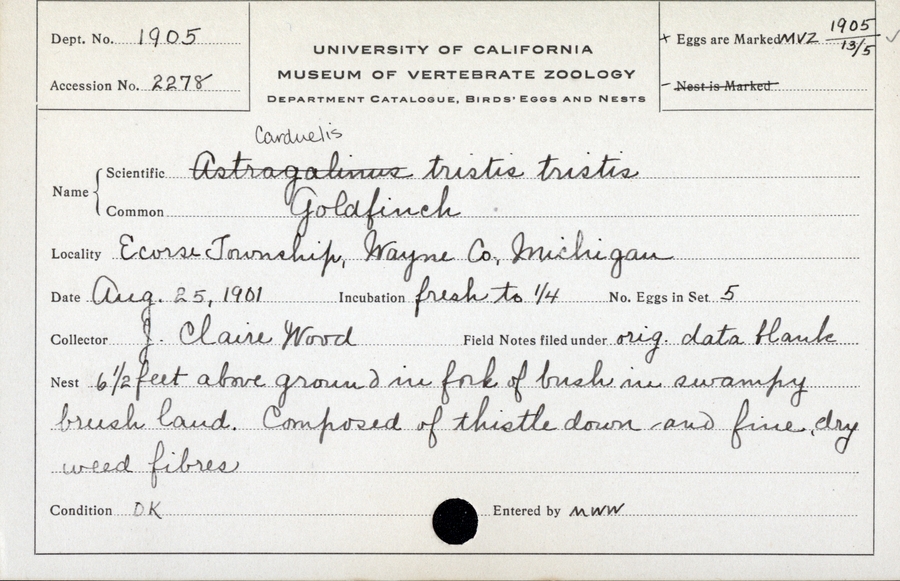 Dept. No. 1905
Accession No. 2278
UNIVERSITY OF CALIFORNIA
MUSEUM OF VERTEBRATE ZOOLOGY
DEPARTMENT CATALOGUE, BIRDS' EGGS AND NESTS
+ Eggs are Marked MVZ 1905
13/5 ✓
- Nest is Marked
Carduelis
Name { Scientific Astragalinus tristis tristis
Common Goldfinch
Locality Ecorse Township, Wayne Co., Michigan
Date Aug. 25, 1901 Incubation fresh to 1/4 No. Eggs in Set 5
Collector J. Claire Wood Field Notes filed under orig. data blank
Nest 6 1/2 feet above ground in fork of bush in swampy
brush land. Composed of thistle down and fine, dry
weed fibres
Condition OK Entered by MWW